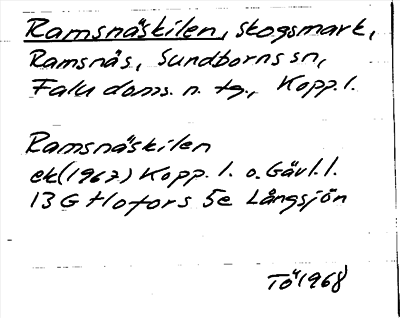 Ramsnäskilen, skogsmark,
Ramsnäs, Sundborns sn,
Falu doms. n. tg., Kopp. l.
Ramsnäskilen
ek (1967) Kopp. l. o. Gävl. l.
13 G Hofors 5e Långsjön
Tö 1968